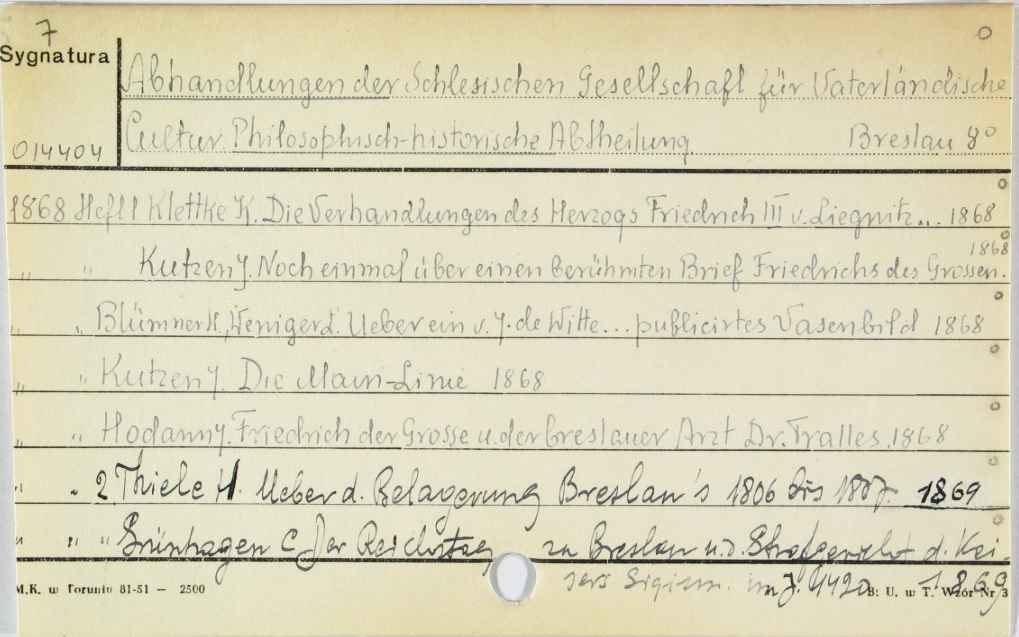 7
Sygnatura
Abhandlungen der Schlesischen Gesellschaft für Vaterländische
014404 Cultur Philosophisch-historische Abtheilung Breslau 8°
1868 Heft 1 Klettke K. Die Verhandlungen des Herzogs Friedrich III v. Liegnitz... 1868
" " Kutzen J. Noch einmal über einen berühmten Brief Friedrichs des Grossen. 1868
" " Blümner H., Weniger L. Ueber ein v. J. de Witte... publicirtes Vasenbild 1868
" " Kutzen J. Die Main-Linie 1868
" " Hodann J. Friedrich der Grosse u. der breslauer Arzt Dr. Tralles. 1868
" " 2 Thiele H. Ueber d. Belagerung Breslau's 1806 bis 1807 1869
" " " Grünhagen C Der Reichstag zu Breslau u. d. Strafgericht d. Kai-
sers Sigism. im J. 1420 1869
M.K. w Toruniu 81-51 — 2500 B. U. w T. Wzór Nr 3